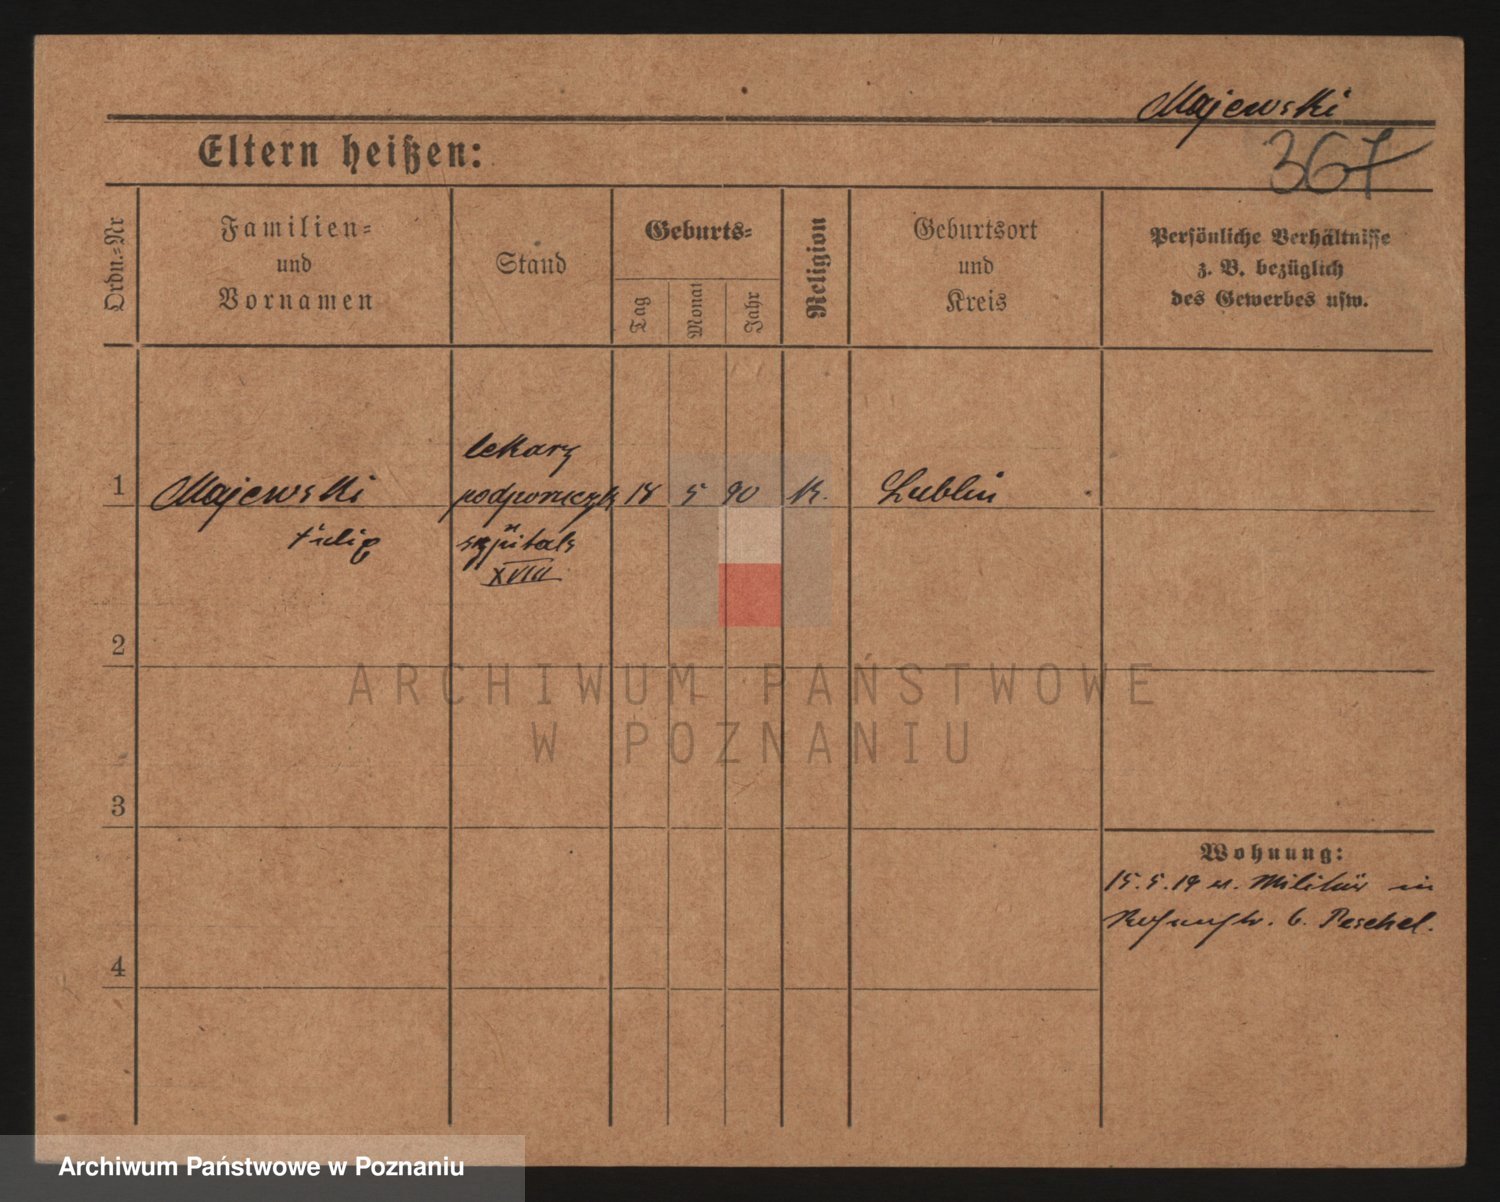 Majewski
367
Eltern heißen:
Ordn.-Nr
Familien-
und
Vornamen
Stand
Geburts-
Tag
Monat
Jahr
Religion
Geburtsort
und
Kreis
Persönliche Verhältnisse
z. B. bezüglich
des Gewerbes usw.
lekarz
1 Majewski podporucznik 18 5 90 K. Lublin
szpitala
XVIII
2
ARCHIWUM PAŃSTWOWE
W POZNANIU
3
Wohnung:
15.5.19 Militär in
b. Peschel.
4
Archiwum Państwowe w Poznaniu